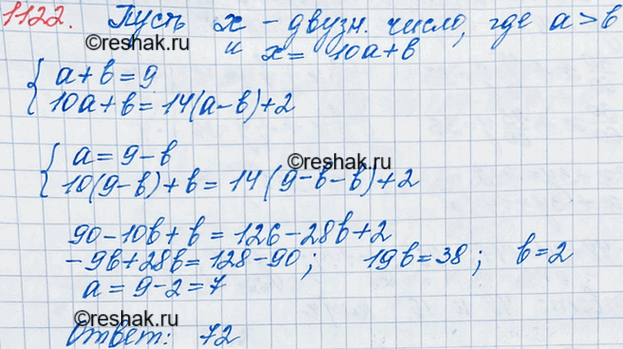 1122. Пусть x - двузн. число, где a > b
и x = 10a+b
©reshak.ru
{ a+b=9
10a+b=14(a-b)+2
©reshak.ru
{ a=9-b
10(9-b)+b=14(9-b-b)+2
90-10b+b=126-28b+2
-9b+28b=128-90; 19b=38; b=2
a=9-2=7
©reshak.ru
©reshak.ru
Ответ: 72